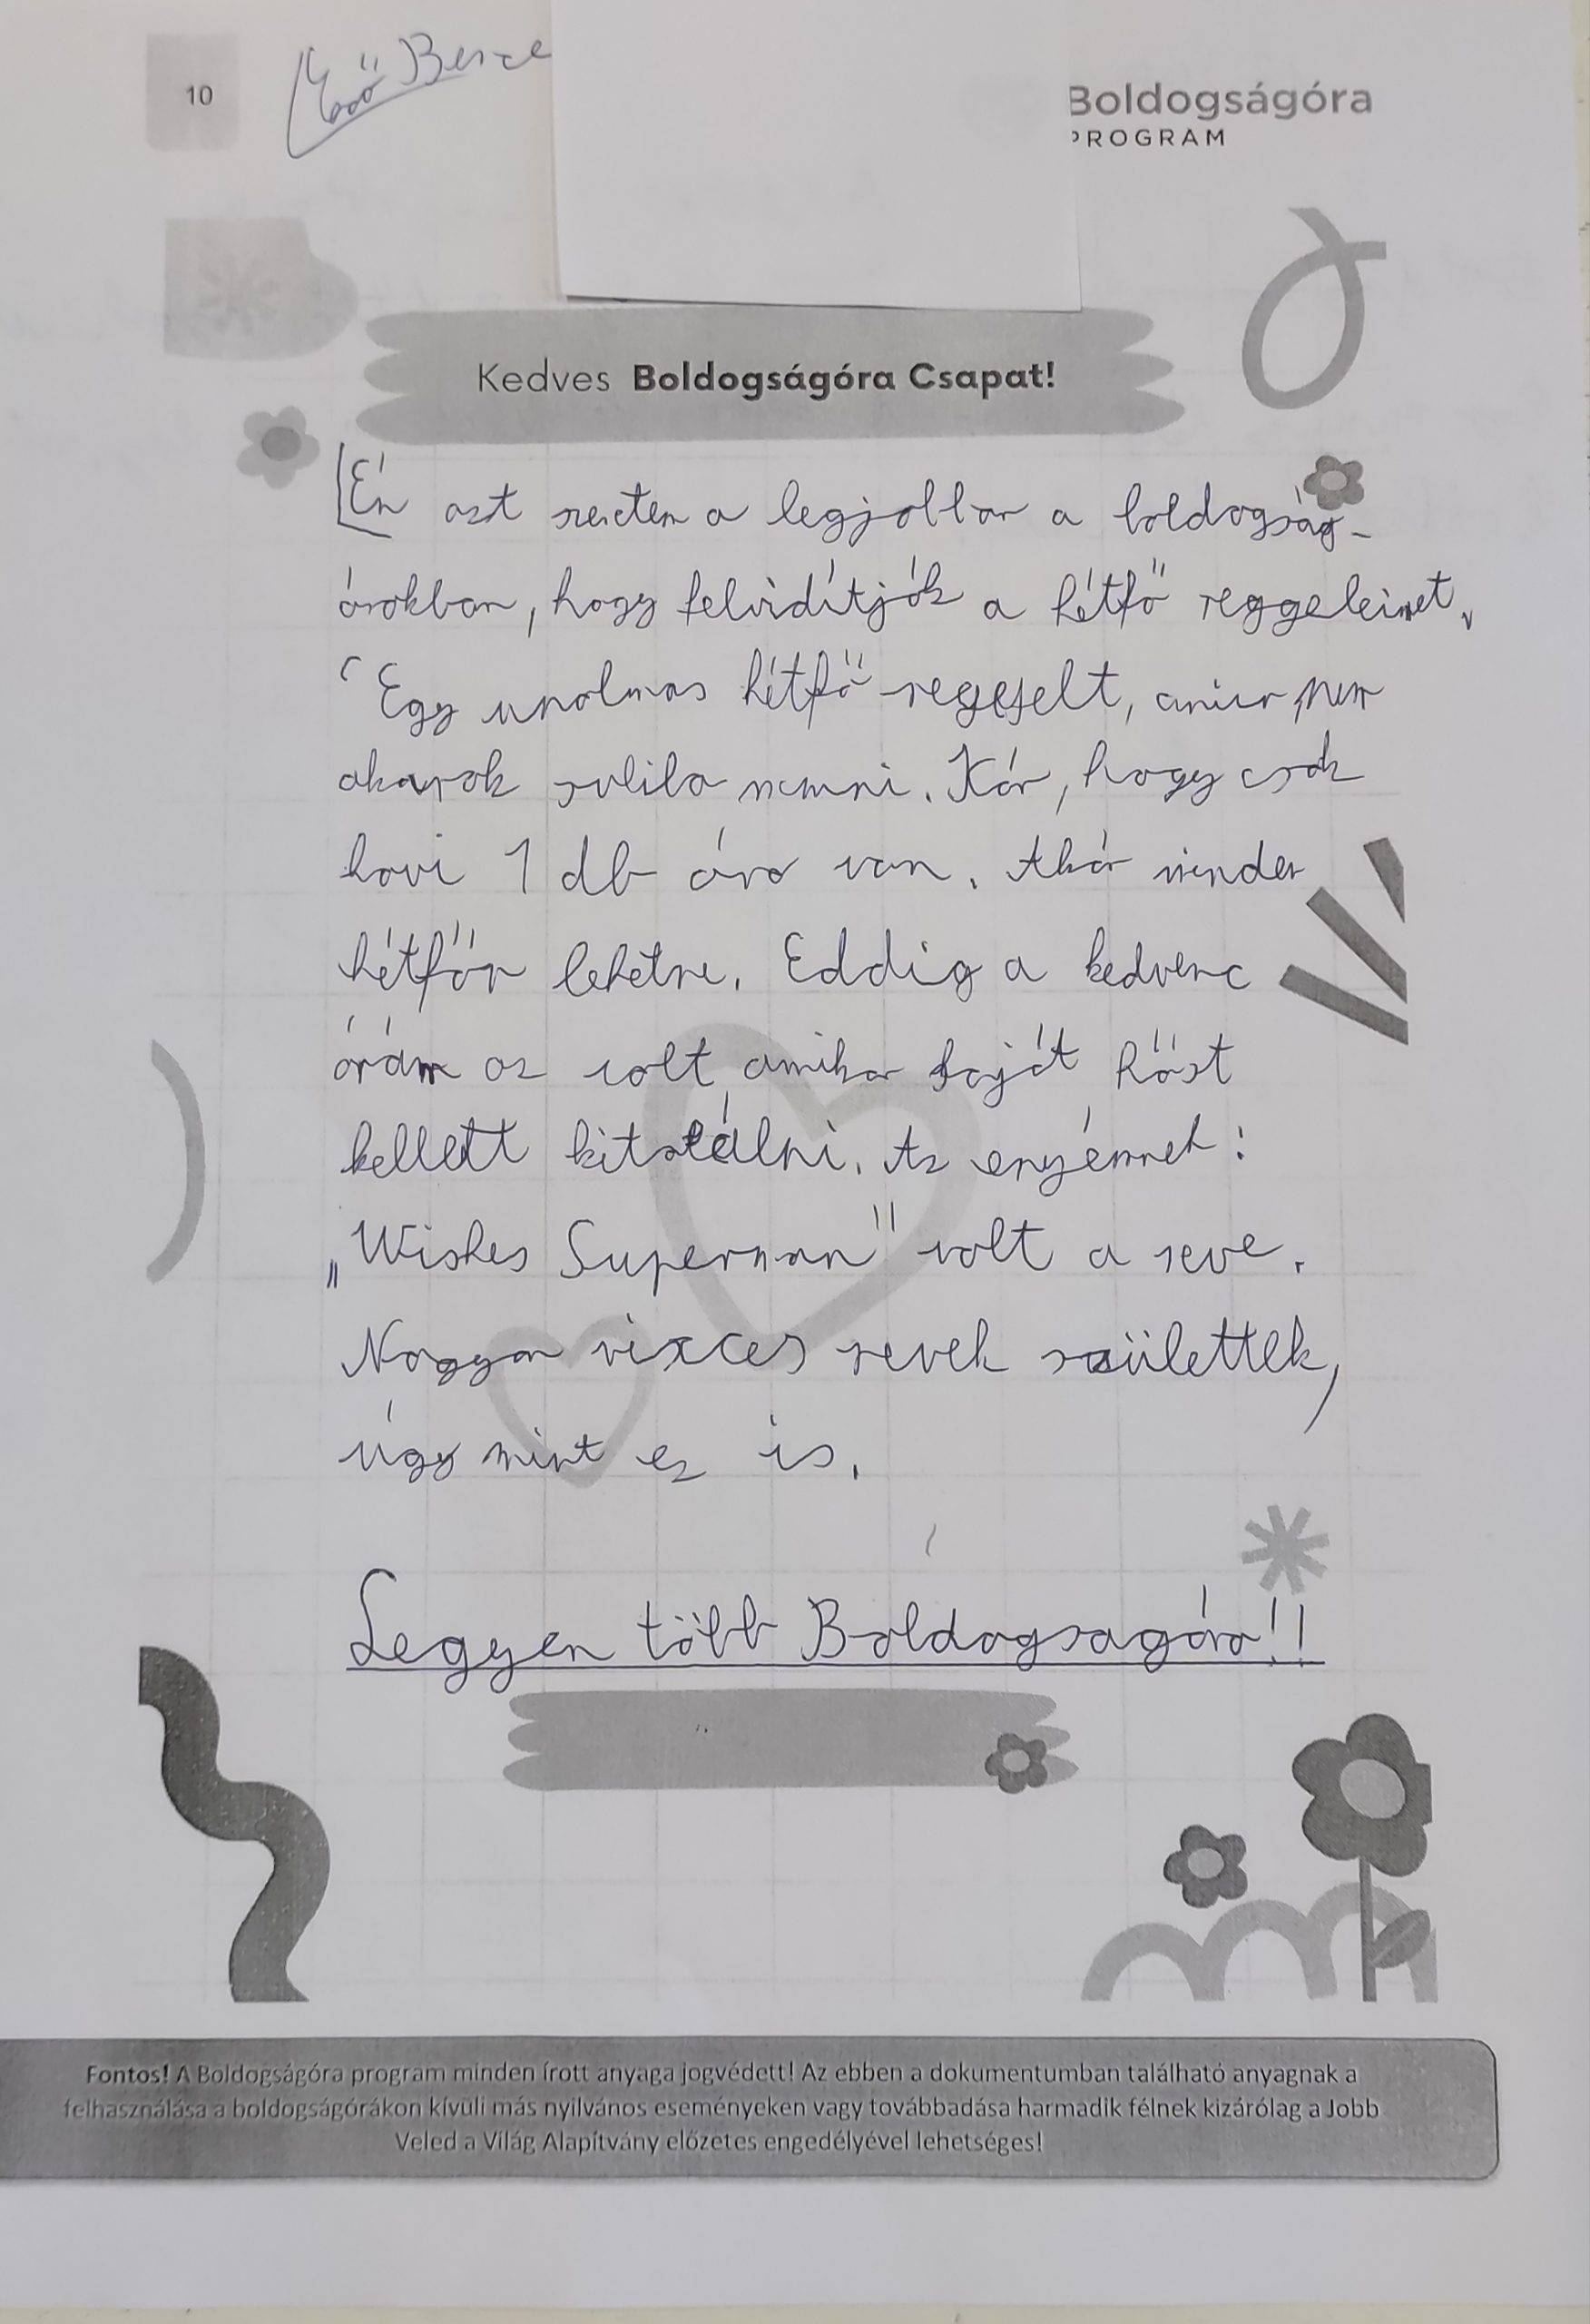 10
Bence
Boldogságóra
PROGRAM
Kedves Boldogságóra Csapat!
Én azt szeretem a legjobban a boldogság-
órákban, hogy felvidítják a hétfő reggeleimet,
Egy unalmas hétfő reggelt, amikor nem
akarok suliba menni. Kár, hogy csak
havi 1 db óra van. Akár minden
hétfőn lehetne. Eddig a kedvenc
órám az volt amikor saját hőst
kellett kitalálni. Az enyémnek:
„Wishes Superman" volt a neve.
Nagyon vicces nevek születtek,
úgy mint ez is.
Legyen több Boldogságóra!!
Fontos! A Boldogságóra program minden írott anyaga jogvédett! Az ebben a dokumentumban található anyagnak a
felhasználása a boldogságórákon kívüli más nyilvános eseményeken vagy továbbadása harmadik félnek kizárólag a Jobb
Veled a Világ Alapítvány előzetes engedélyével lehetséges!